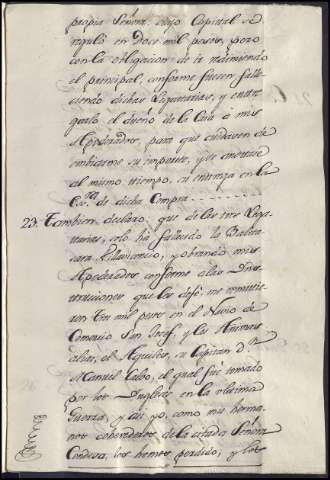 propia Señora, cuyo Capital se
reguló en Doce mil pesos, pero
con la obligacion de ir redimiendo
el principal, conforme fuesen falle-
ciendo dichas Legatarias, y entre-
garlo el dueño de la Casa a mis
Apoderados, para que cuidasen de
embiarme su importe, y se anotase
al mismo tiempo, su entrega en la
de dicha Compra
23. Tambien declaro, que de las tres Lega-
tarias, solo ha fallecido la Balta-
sara Villavicencio, y obrando mis
Apoderados conforme a las Ins-
trucciones que les dejé, me remitie-
ron tres mil pesos en el Navio de
Comercio San Josef, y las Animas
alias, el Aquiles, su Capitan Dn.
Manuel Calvo, el qual fue tomado
por los Ingleses en la ultima
Guerra, y asi yo, como mis herma-
nos coherederos de la citada Señora
Condesa, los hemos perdido, y los